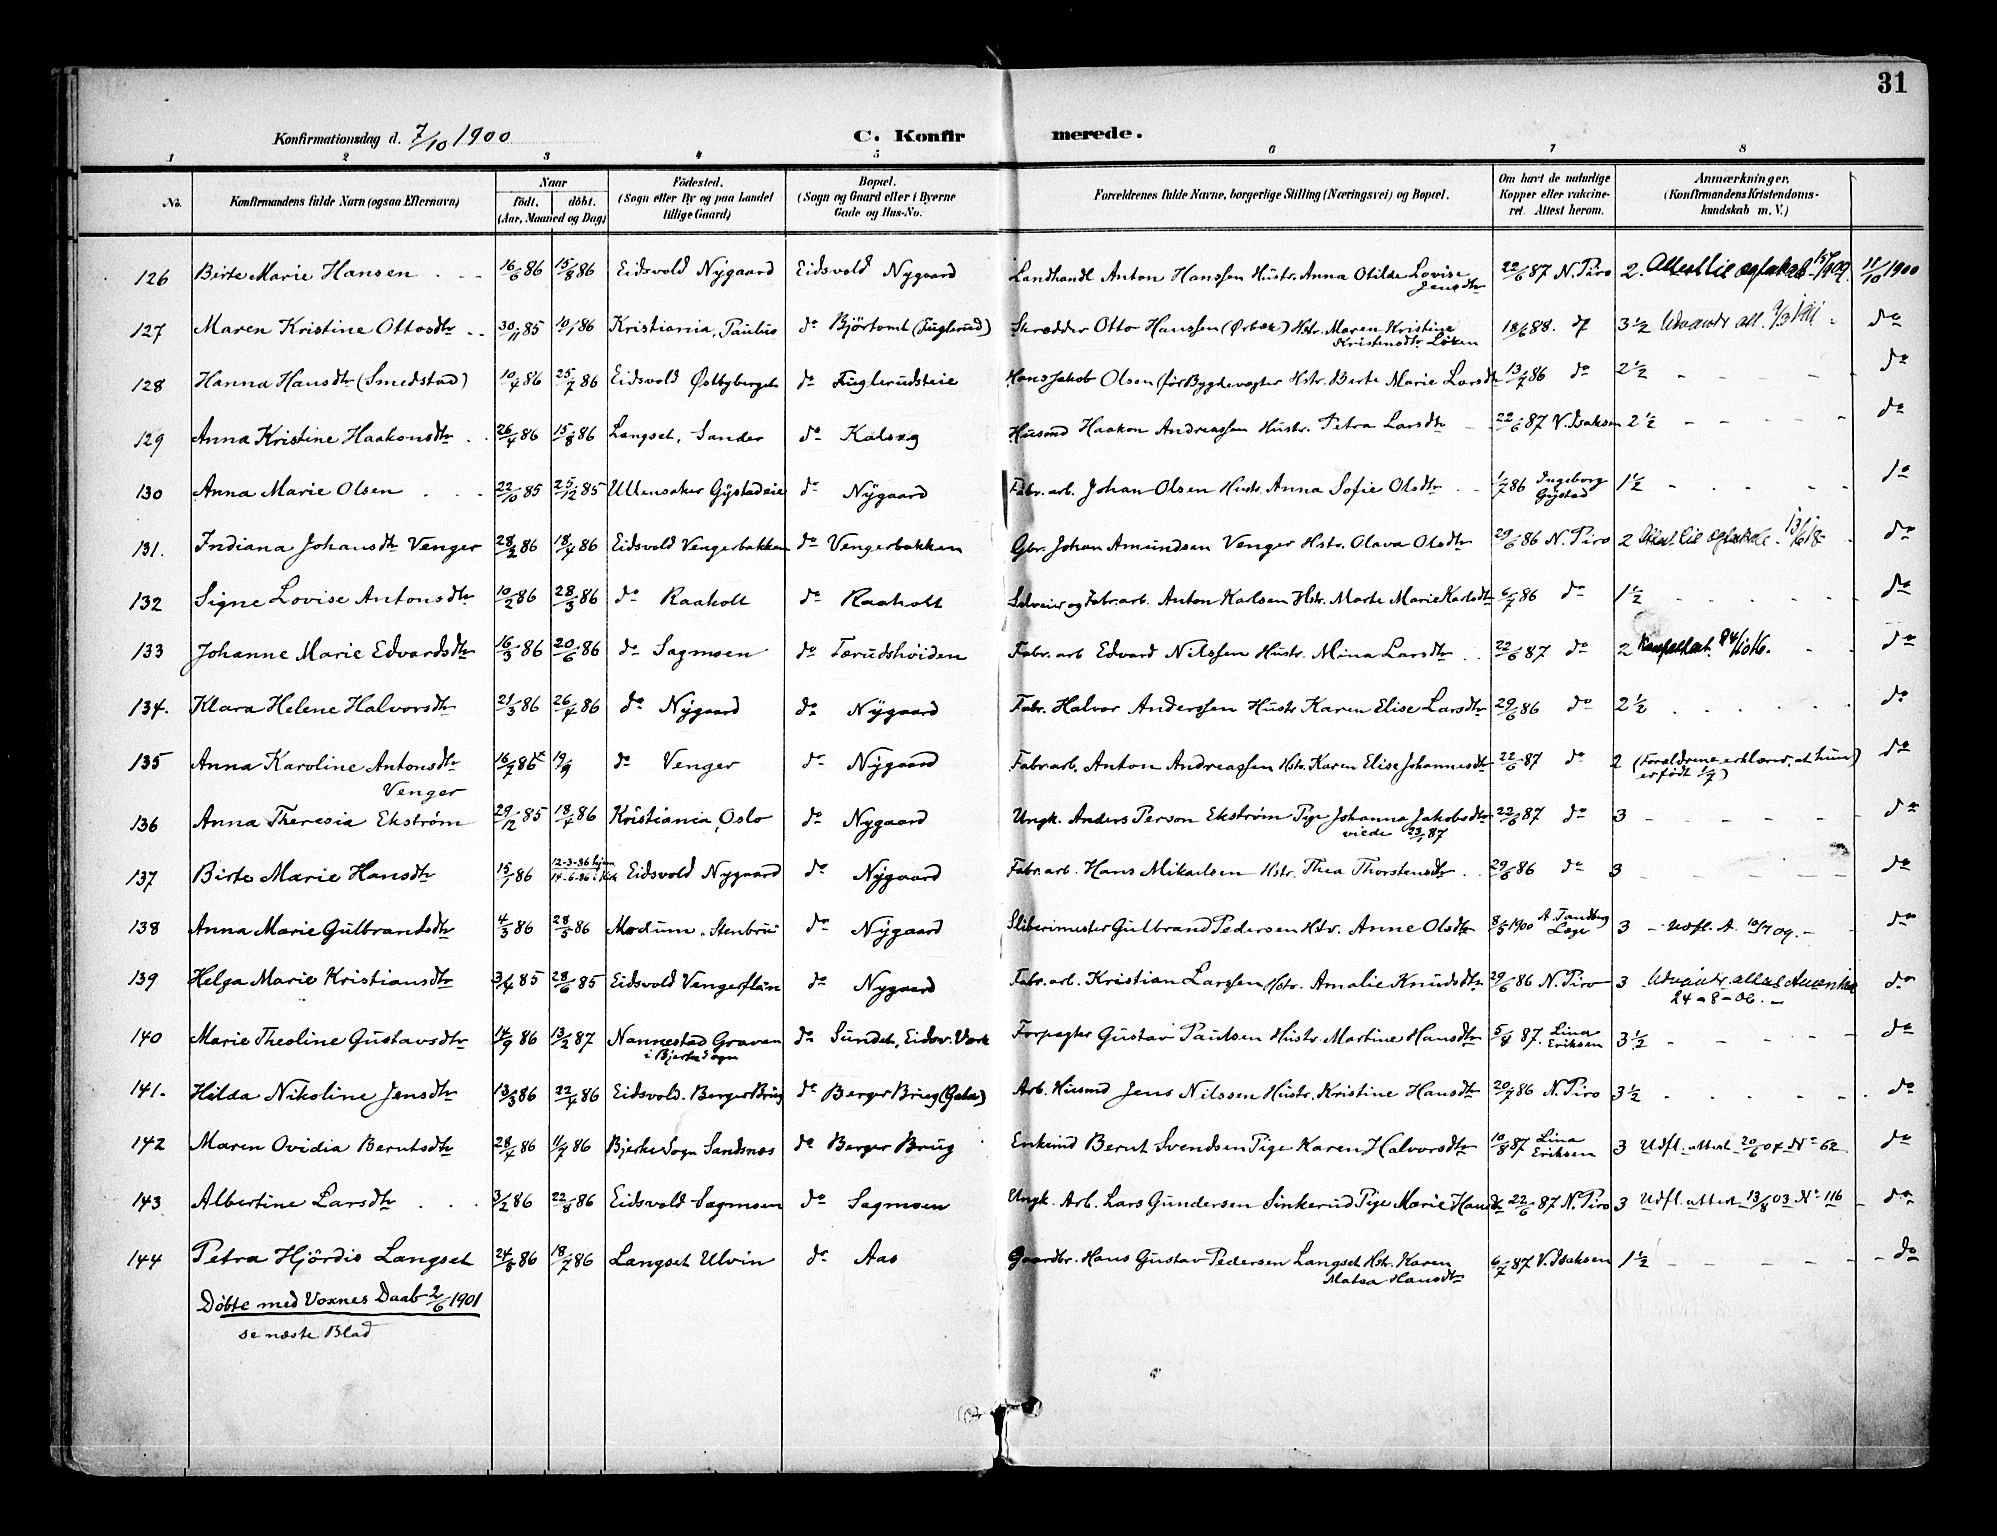 31
Konfirmationsdag d. 7/10 1900
C. Konfirmerede.
1 2 3 4 5 6 7 8
No.
Konfirmandens fulde Navn (ogsaa Efternavn)
Naar
födt. döbt.
(Aar, Maaned og Dag)
Födested.
(Sogn eller By og paa Landet
tillige Gaard)
Bopæl.
(Sogn og Gaard eller i Byerne
Gade og Hus-No.
Forældrenes fulde Navne, borgerlige Stilling (Næringsvei) og Bopæl.
Om havt de naturlige
Kopper eller vaccine-
ret. Attest herom.
Anmærkninger.
(Konfirmandens Kristendoms-
kundskab m. V.)
126 Birte Marie Hansen 16/6 86 15/8 86 Eidsvold Nygaard Eidsvold Nygaard Landhandl Anton Hanssen Hustr. Anna Otilde Lovise Jensdtr 22/6 87 N. Piro 2 11/10 1900
127 Maren Kristine Ottosdtr 30/11 85 10/1 86 Kristiania, Paulus do Björtomt (Fuglerud) Skrædder Otto Hanssen (Ørbæk) Hstr. Maren Kristine Kristensdtr Löken 18/6 88. do 3 1/2 do
128 Hanna Hansdtr (Smedstad) 10/4 86 25/7 86 Eidsvold Østbyberget do Fuglerudsteie Hans Jakob Olsen (för Bygdevogter Hstr. Berte Marie Larsdtr 13/7 86 do 2 1/2 do
129 Anna Kristine Haakonsdtr 26/4 86 15/8 86 Langset, Sander do Kalsæg Husmd Haakon Andreassen Hustr. Petra Larsdtr 22/6 87 V. Isaksen 2 1/2 do
130 Anna Marie Olsen 22/10 85 25/12 85 Ullensaker Gystadeie do Nygaard Fabr. arb. Johan Olsen Hustr. Anna Sofie Olsdtr 1/7 86 Ingeborg Gystad 1 1/2 do
131. Indiana Johansdtr Venger 28/2 86 18/4 86 Eidsvold Vengerbakken do Vengerbakken Gbr. Johan Amundsen Venger Hstr. Olava Olsdtr 29/6 86 N. Piro 2 do
132 Signe Lovise Antonsdtr 10/2 86 28/3 86 do Raaholt do Raaholt Selveier og Fabr. arb. Anton Karlsen Hstr. Marte Marie Karlsdtr 6/7 86 do 1 1/2 do
133 Johanne Marie Edvardsdtr 16/3 86 20/6 86 do Sagmoen do Tærudshöiden Fabr. arb Edvard Nilssen Hustr. Mina Larsdtr 22/6 87 do 2 do
134. Klara Helene Halvorsdtr 21/3 86 26/4 86 do Nygaard do Nygaard Fabr. Halvor Anderssen Hustr Karen Elise Larsdtr 29/6 86 do 2 1/2 do
135 Anna Karoline Antonsdtr Venger 16/7 85 19/9 do Venger do Nygaard Fabr. arb. Anton Andreassen Hstr. Karen Elise Johannesdtr 22/6 87 do 2 (Forældrene erklærer, at hun er födt 1/7) do
136 Anna Theresia Ekström 29/12 85 18/4 86 Kristiania, Oslo do Nygaard Ungk. Anders Person Ekström Pige Johanna Jakobsdtr viede 87 22/6 87 do 3 do
137 Birte Marie Hansdtr 15/1 86 12-3-86 hjem. 14-6-86 i Kirk Eidsvold Nygaard do Nygaard Fabr. arb. Hans Mikaelsen Hstr. Thea Thorstensdtr 29/6 86 do 3 do
138 Anna Marie Gulbrandsdtr 4/3 86 28/5 86 Modum, Stenbrui do Nygaard Sliberimester Gulbrand Pedersen Hstr. Anne Olsdtr 8/5 1900 A. Tandberg Læge 3 Udfl. A. 10/7 09. do
139 Helga Marie Kristiansdtr 3/4 85 28/6 85 Eidsvold Vengerflån do Nygaard Fabr. arb. Kristian Larssen Hstr. Amalie Knudsdtr 29/6 86 N. Piro 3 24-8-06. do
140 Marie Theoline Gustavsdtr 14/9 86 13/2 87 Nannestad Graven i Bjerke Sogn do Sundet, Eidsv. Værk Forpagter Gustav Paulsen Hustr Martine Hansdtr 5/8 87. Lina Eriksen 3 1/2 do
141. Hilda Nikoline Jensdtr 13/3 86 22/4 86 Eidsvold. Berger Brug do Berger Brug (Gata) Arb. Husmd Jens Nilssen Hustr. Kristine Hansdtr 20/7 86 N. Piro 3 1/2 do
142 Maren Ovidia Berntsdtr 28/4 86 11/7 86 Bjerke Sogn Sandsnæs do Berger Brug Enkemd Bernt Svendsen Pige Karen Halvorsdtr 10/8 87 Lina Eriksen 3 Udfl. attest 20/6 04 No 62 do
143 Albertine Larsdtr 3/2 86 22/8 86 Eidsvold Sagmoen do Sagmoen Ungk. Arb. Lars Gundersen Sinkerud Pige Marie Hansdtr 22/6 87 N. Piro 3 Udfl. attest 13/8 03 No 116 do
144 Petra Hjördis Langset 24/5 86 18/7 86 Langset Ulvin do Aas Gaardbr. Hans Gustav Pedersen Langset Hstr. Karen Matea Hansdtr 6/7 87 V. Isaksen 1 1/2 do
Döbte med Voxnes Daab 2/6 1901
se næste Blad